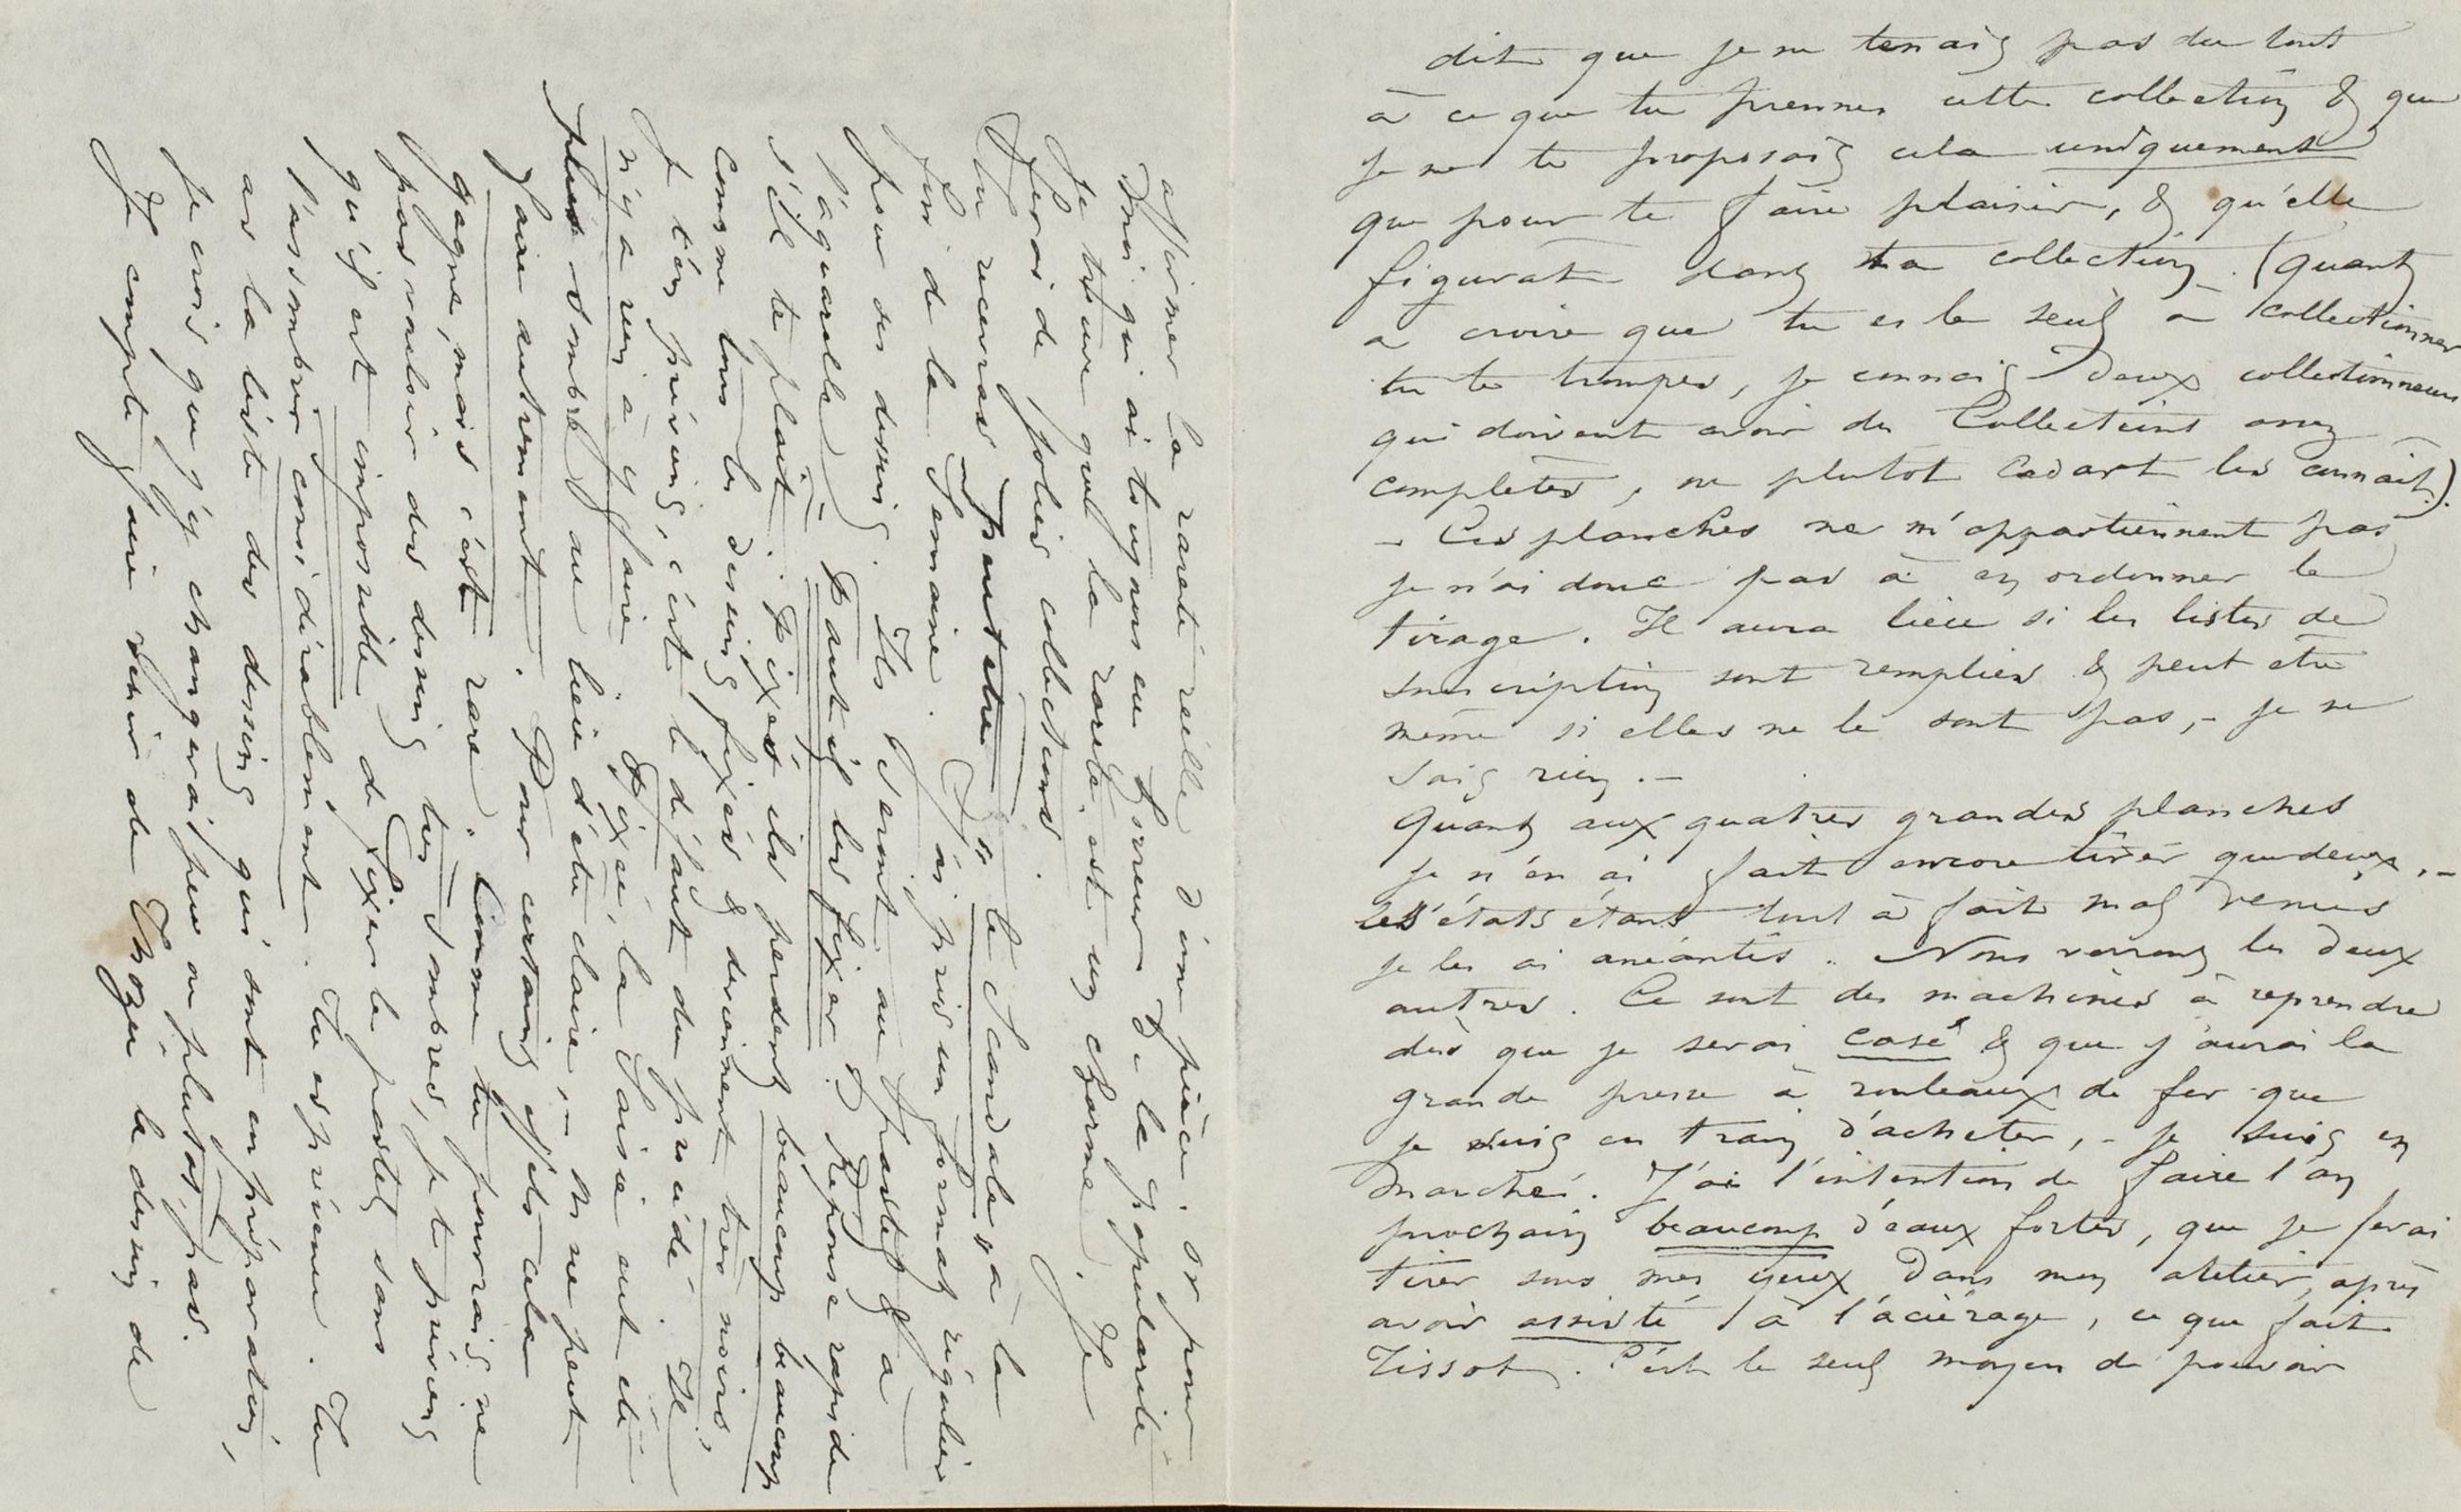 dit que je ne tenais pas du tout
à ce que tu prennes cette collection & que
je ne te proposais cela uniquement
que pour te faire plaisir, & qu'elle
figurat dans ta collection. (quant
a croire que tu es le seul a collectionner
tu te trompes, je connais deux collectionneurs
qui doivent avoir des Collections assez
complètes, ou plutot Cadart les connait).
– Ces planches ne m'appartiennent pas
je n'ai donc pas à en ordonner le
tirage. Il aura lieu si les listes de
souscription sont remplies & peut etre
même si elles ne le sont pas, – je ne
sais rien. –
Quant aux quatres grandes planches
je n'en ai fait encore tirer que deux, –
les états étant tout à fait mal venus
je les ai anéantis. Nous verrons les deux
autres. Ce sont des machines à reprendre
dès que je serai casé & que j'aurai la
grande presse à rouleaux de fer que
je suis en train d'acheter, – je suis en
marché. J'ai l'intention de faire l'an
prochain beaucoup d'eaux fortes, que je ferai
tirer sous mes yeux dans mon atelier, après
avoir assisté à l'aciérage, ce que fait
Tissot. C'est le seul moyen de pouvoir
affirmer la rareté réelle d'une pièce. or pour
moi qui ai toujours eu horreur de la popularité
je trouve que la rareté est un charme. Je
ferai de jolies collections.
Tu recevras peut etre le Scandale à la
fin de la semaine. J'ai pris un format régulier
pour ces dessins. Ils seront au pastel & a
l'aquarelle. Faut-il les fixer? Réponse rapide
s'il te plait. Fixés ils perdent beaucoup beaucoup
comme tous les dessins fixés & deviennent très noirs,
je t'en préviens, c'est le défaut du procédé. Il
n'y a rien à y faire. Fixé, la Saisie eut été
plus sombre au lieu d'etre claire, – on ne peut
faire autrement. Pour certains effets cela
gagne, mais c'est rare. Comme tu pourrais ne
pas vouloir des dessins très sombres, je te préviens
qu'il est impossible de fixer le pastel sans
l'assombrir considérablement. Tu es prévenu. Tu
as la liste des dessins qui sont en préparation,
je crois que j'y changerai peu ou plutot, pas.
Je compte faire servir de Thozée le dessin de